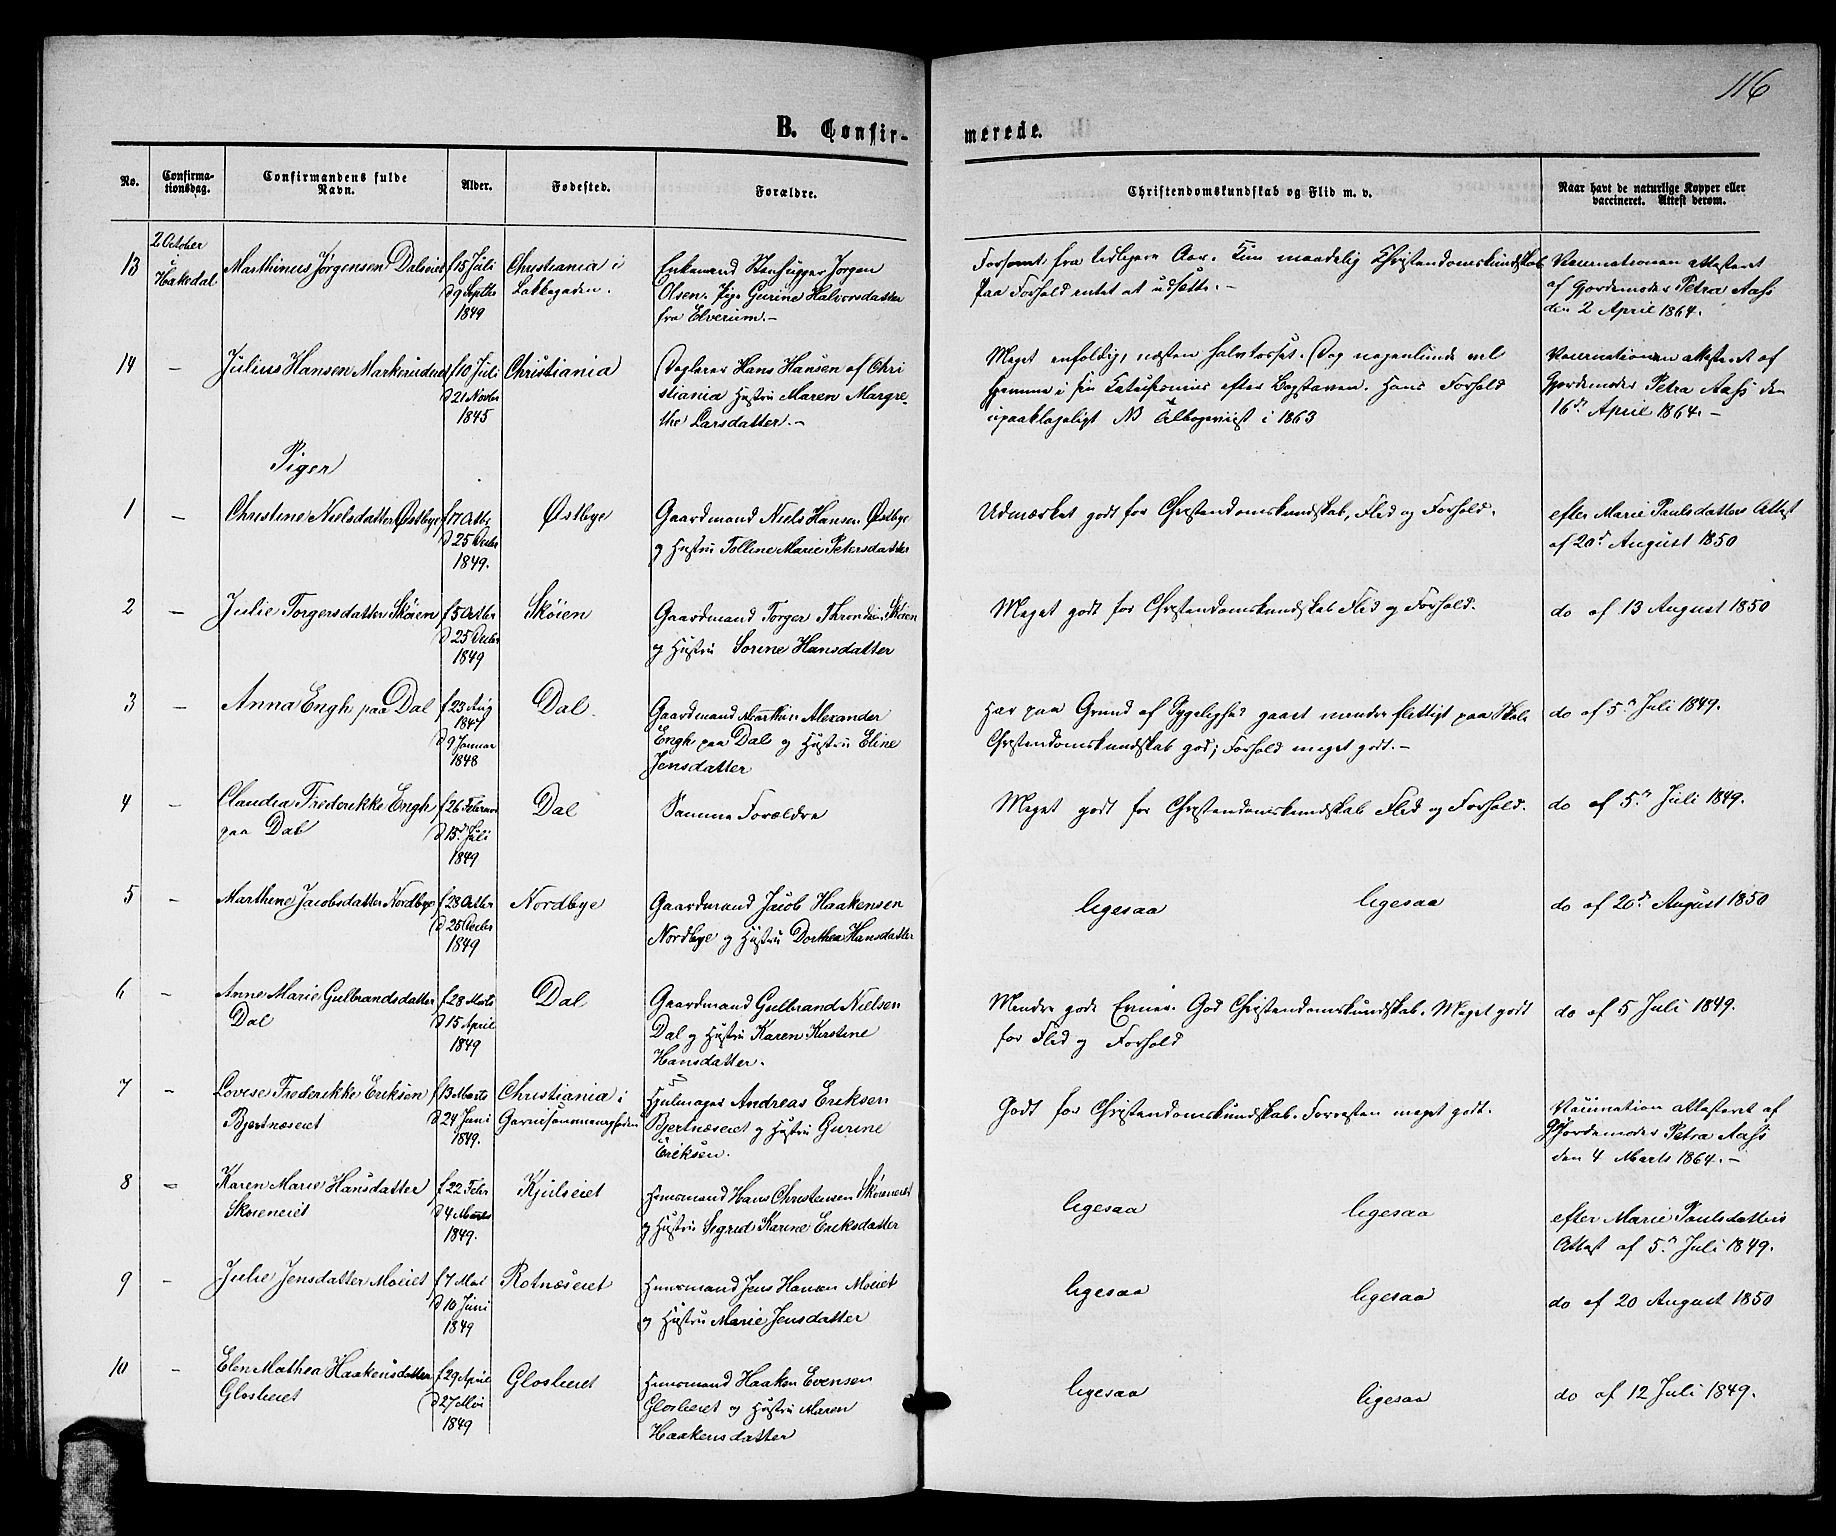 116
B. Confir-
merede.
No.
Confirma-
tionsdag.
Confirmandens fulde
Navn.
Alder.
Fødested.
Forældre.
Christendomskundskab og Flid m. v.
Naar havt de naturlige Kopper eller
vaccineret. Attest derom.
2 October
i
Hakedal
13
Marthinius Jørgensen Dalseiet
f 15 Juli
d 9 Septbr
1849
Christiania i
Lakkegaden.
Enkemand Stenhugger Jørgen
Olsen. Pige Gurine Halvorsdatter
fra Elverum.-
Forsømt fra tidligere Aar. Kun maadelig Christendomskundskab
paa Forhold intet at udsætte.-
Vaccinationen attesteret
af Gjordemoder Petra Aass
den 2 April 1864.
14
-
Julius Hansen Markerudeiet
f 10 Juli
d 21 Novbr
1845
Christiania
Daglejer Hans Hansen af Chri
stiania Hustru Maren Margre-
the Larsdatter.-
Meget enfoldig, næsten halvtosset. Dog nogenlunde vel
hjemme i sin Katechismus efter Bogstaven. Hans Forhold
upaaklageligt NB i 1863
Vaccinationen attesteret af
Gjordemoder Petra Aass den
16de April 1864.-
Piger
1
-
Christine Nielsdatter Østbye
f 17 Octbr
d 25 Decbr
1849.
Østbye
Gaardmand Niels Hansen Østbye
og Hustru Tolline Marie Petersdatter
Udmærket godt for Christendomskundskab, Flid og Forhold.
efter Marie Paulsdatters Attest
af 20de August 1850
2
-
Julie Torgersdatter Skøien
f 5 Octbr
d 25 Decbr
1849
Skøien
Gaardmand Torger Throndsen Skøien
og Hustru Sorine Hansdatter
Meget godt for Christendomskundskab Flid og Forhold.
do af 13 August 1850
3
-
Anna Engh paa Dal
f 23 Aug
1847
d 9 Januar
1848
Dal
Gaardmand Marthin Alexander
Engh paa Dal og Hustru Eline
Jensdatter
Har paa Grund af Sygelighed gaaet mindre flittigt paa Skole
Christendomskundskab god; Forhold meget godt.-
do af 5te Juli 1849.
4
-
Claudia Frederikke Engh
paa Dal
f 26 Februar
d 15de Juli
1849
Dal
Samme Forældre
Meget godt for Christendomskundskab Flid og Forhold.
do af 5te Juli 1849.
5
-
Marthine Jacobsdatter Nordbye
f 23 Octbr
d 26 Decbr
1849
Nordbye
Gaardmand Jacob Haakensen
Nordbye og Hustru Dorthea Hansdatter
ligesaa ligesaa
do af 20de August 1850
6
-
Anne Marie Gulbrandsdatter
Dal
f 28 Marts
d 15 April
1849
Dal
Gaardmand Gulbrand Nielsen
Dal og Hustru Karen Kirstine
Hansdatter.
Mindre gode Evner. God Christendomskundskab. Meget godt
for Flid og Forhold
do af 5 Juli 1849.
7
-
Lovise Frederikke Eriksen
Bjertnæseiet
f 13 Marts
d 24 Juni
1849.
Christiania i
Garnisonsmenigheden
Hjulmager Andreas Eriksen
Bjertnæseiet og Hustru Gurine
Eriksen.
Godt for Christendomskundskab. Forresten meget godt.
Vaccination attesteret af
Gjordemoder Petra Aass
den 4 Marts 1864.-
8
-
Karen Marie Hansdatter
Skøieneiet
f 22 Febr
d 4 Marts
1849.
Kjulseiet
Huusmand Hans Christensen Skøieneiet
og Hustru Sigrid Karine Eriksdatter
ligesaa ligesaa
efter Marie Paulsdatters
Attest af 5te Juli 1849.
9
-
Julie Jensdatter Moeiet
f 7 Mai
d 10 Juni
1849
Rotnæseiet
Huusmand Jens Hansen Moeiet
og Hustru Marie Jensdatter
ligesaa ligesaa
do af 20 August 1850
10
-
Elen Mathea Haakensdatter
Gloslieiet
f 29 April
d 27 Mai
1849
Gloslieiet
Huusmand Haaken Evensen
Glosliei​et og Hustru Maren
Haakensdatter
ligesaa ligesaa
do af 12 Juli 1849.